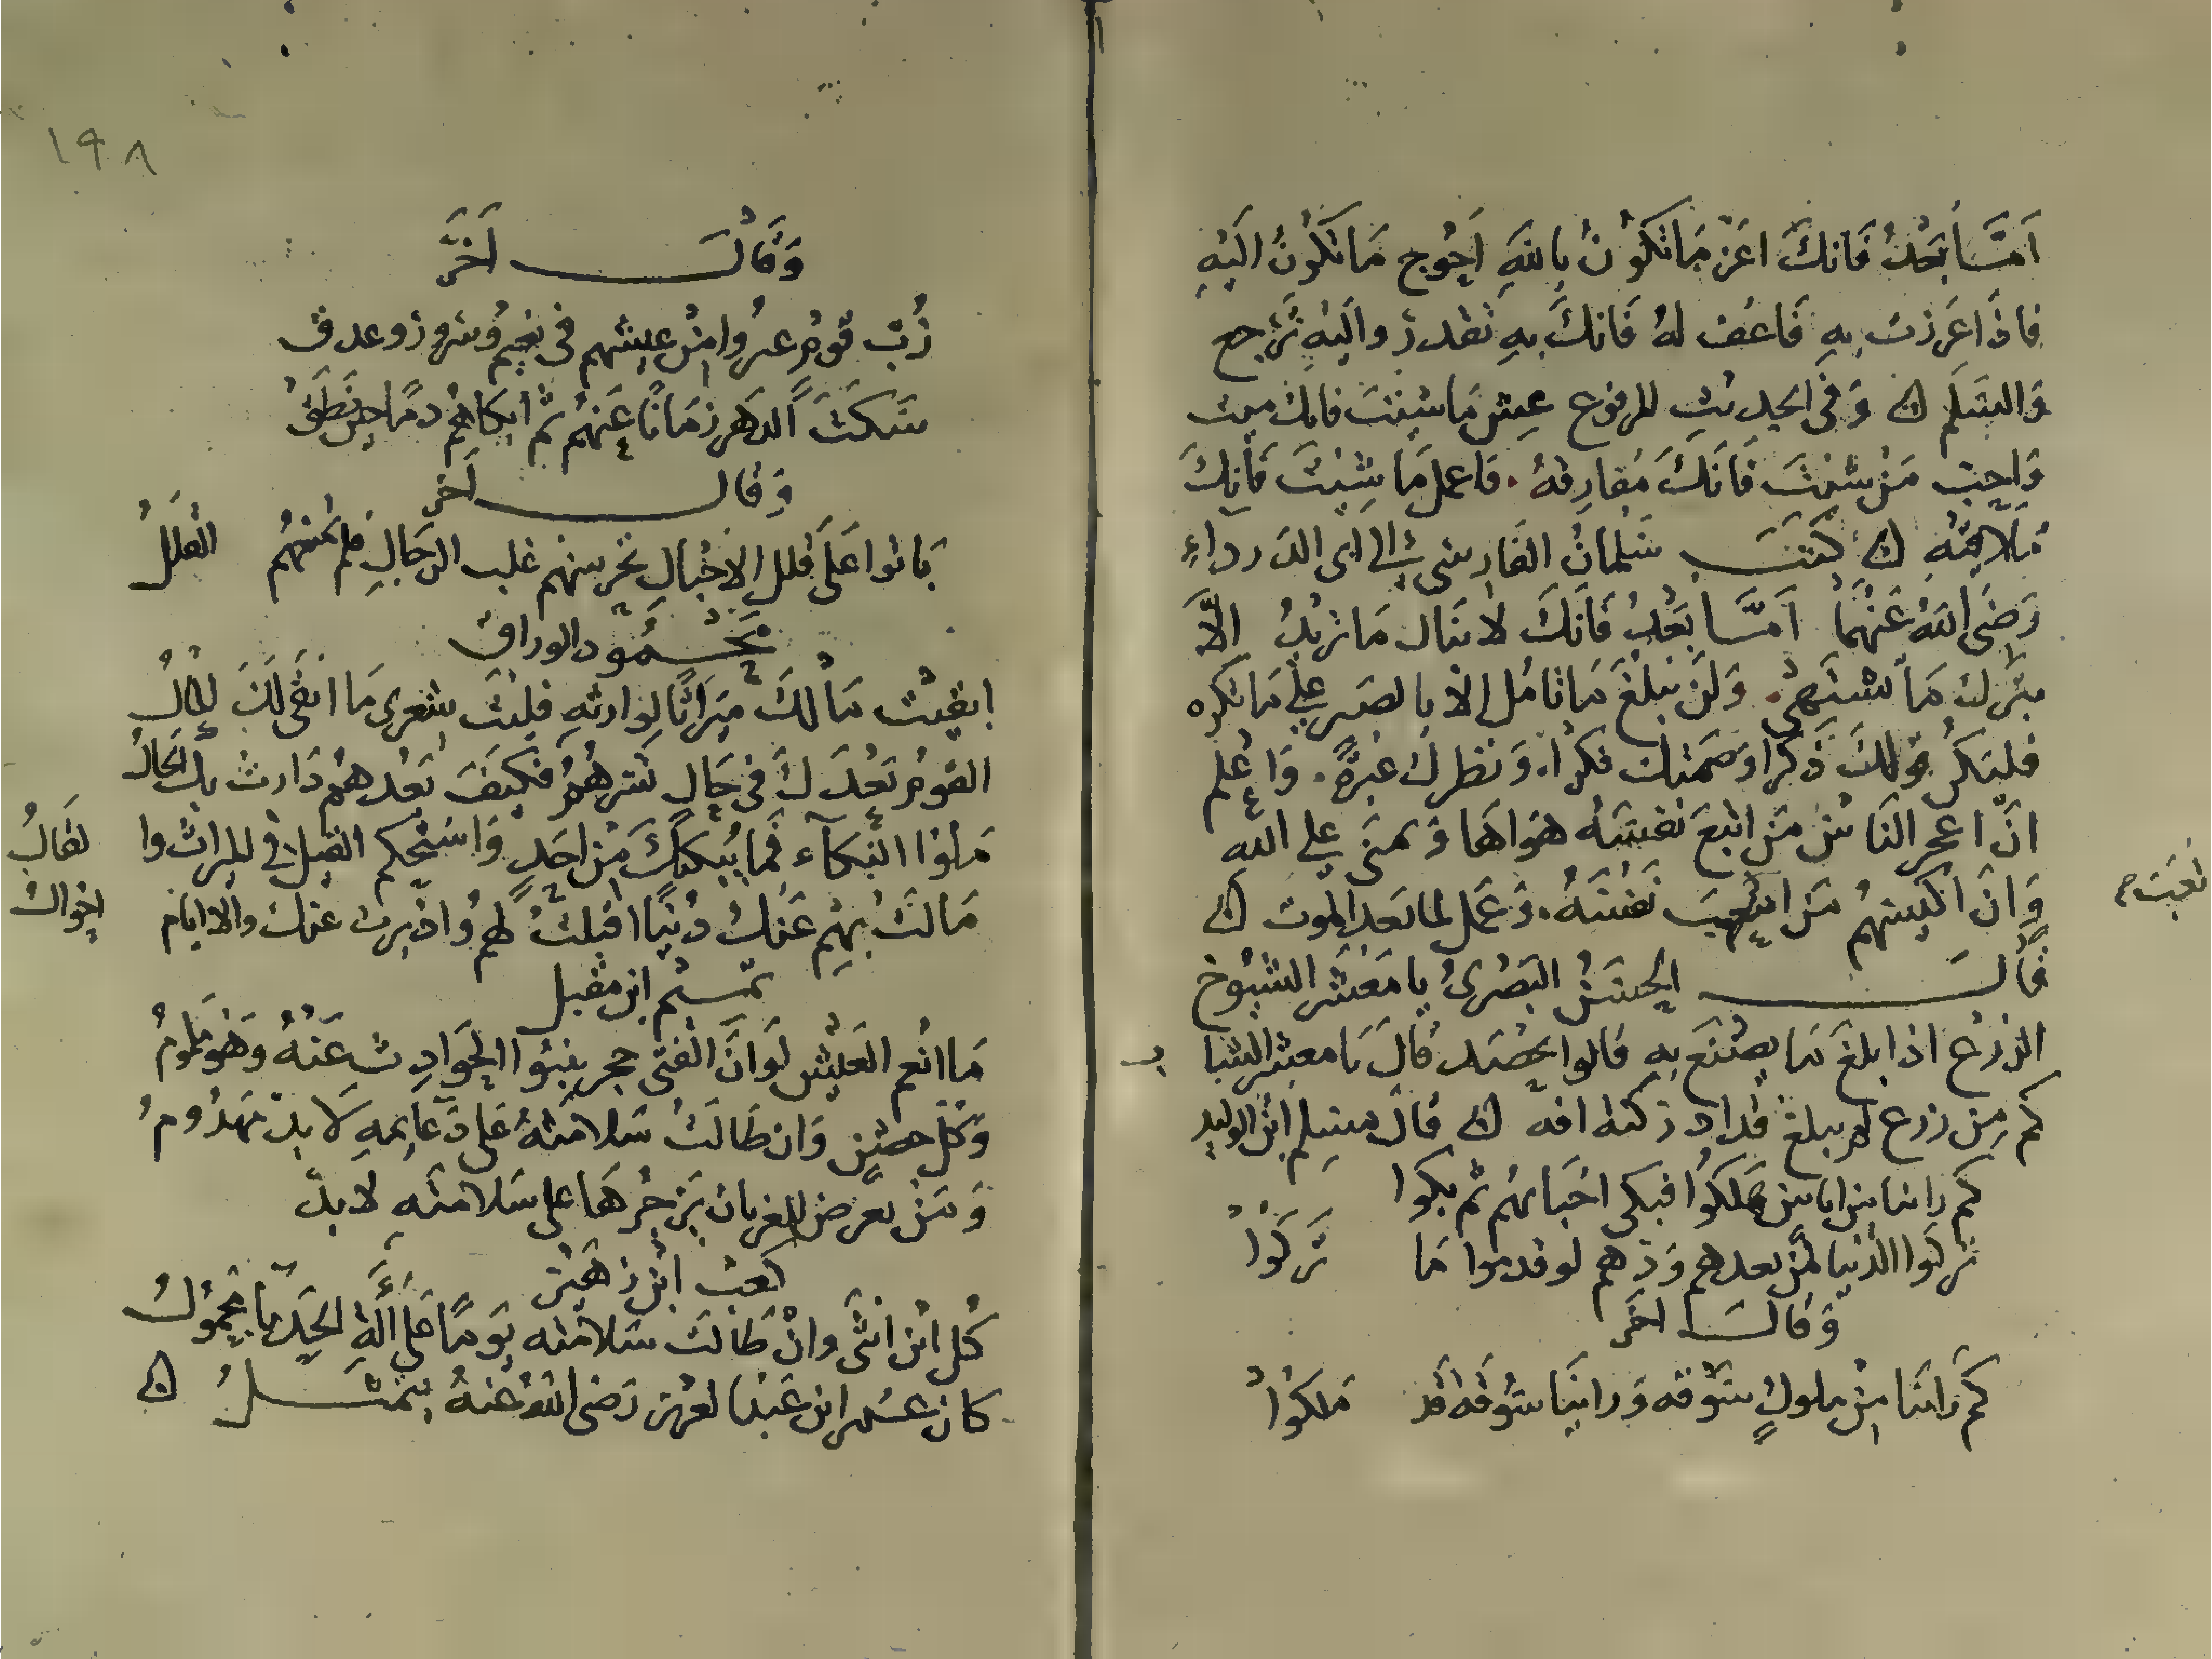 اَمَّا بَعْدُ فَانكَ اعَز مَا تكُونُ بِاللهِ اَحْوج مَا تكُونُ اليَهِ
فاذَا عَززتَ بِهِ فَاعُف لهُ فَانكَ بهِ تَقدر واليَهِ تَرجع
وَالسَّلم ۞ وَفى الحديثِ المرفوع عِش مَا شئتَ فانك ميت
وَاحبب مَن شئتَ فَانكَ مُفارِقهُ . فاعمل مَا شئتَ فَانكَ
مُلَاقيْهِ ۞ كَتَبَ سَلمانُ الفَارسى الى ابى الدَرداءِ
رَضىَ اللهُ عَنْهُمَا اَمَّا بَعْدُ فَانكَ لا تنال مَا تريْدُ الّا
بترك مَا تشتهى . وَلَن تبلغَ مَا تامُل الا بالصبر على مَا تكره
فليكن قولكَ ذكرًا وَصَمتك فكرًا . وَنظرك عبرةً . وَاعْلم
انّ اعجز النَاسْ مَن اتبعَ نفسَهُ هَواهَا وَتمنى على الله
وَانَ اكيسهُم مَن اتعبَ نَفْسَهُ . وَعَمل لما بَعد الموت ۞
تعبَ
قالَ الحسَنُ البَصْرىُ يا مَعْشَر الشيُوخ
الزرْع اذا بلغَ مَا يصْنَع بهِ قالوا يحْصَد قالَ يا معشر الشبا
ب
كم مِن زرع لم يبلغ قد ادركته افه ۞ قال مسلم ابْن الوليد
كم راينا من اناس هَلكوُا فبكى احْبَابهُم ثم بكوا
تركوا الدنيا لمن بعدهم وَدهم لو قدموا مَا تَرَكُوْا
وَقالَ اخَر
كم رَاينَا مِنْ ملوكٍ سُوْقه وَراينَا سُوقَه قد مَلكوُا
١٩٨
وَقَالَ اَخَرَ
رُبّ قومٍ عبرُوا مِنْ عيشهم فى نعيم وسرور وعدق
سَكَتَ الدَهَر زمَانًا عَنهُم ثم ابكاهُم دمًا حين نَطَقْ
وَقال اَخر
بَاتوا عَلَى قلل الاجْبال تحرسهم غلب الرجَالِ فلم تمنعهُم القلَلُ
محْمُود الوراق
ابقيْت مَالكَ ميرَاثًا لوارثهِ فليْتَ شعرى مَا ابقى لَكَ المالُ
القومُ بَعْدَكَ فى حَالٍ تسرهُمُ فكيَفَ بَعْدهُمْ دَارتْ بك الحَالُ
مَلوا البُكآء فَما يُبكيْكَ مِن احَدٍ وَاسْتحكم القيل فى الميراث وا
لقالُ
مَالتْ بهِمِ عَنكَ دنيًا اقبلتْ لهمُ وادبرت عنك والايام
احوال
تميم ابن مقبل
مَا انْعم العَيْش لَو انَّ الفَتى حجر ينبُوا الحَوَادِث عَنْهُ وَهْو ملومُ
وَكل حصْنٍ وَان طَالَتْ سَلامَتهُ على دَعَائِمهِ لَا بدّ مَهدُومُ
وَمَن تعرض للغربان يزجرهَا على سَلامتهِ لا بدّ
كعب ابْن زهَيْر
كُل ابْن انثَى وانْ طَالتَ سَلامته يَومًا عَلى الَةٍ حَدبَاءَ محمُولُ
كان عُمر ابن عَبْد العزيز رَضى اللهُ عَنهُ يتمثلُ ۞